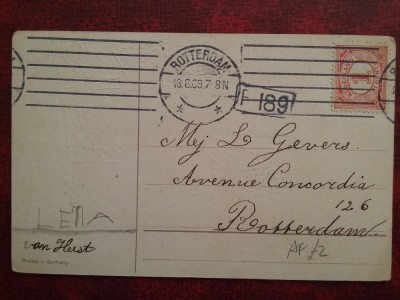 ROTTERDAM
18.6.09.7-8N
F 189
1
Mej L Gevers.
Avenue Concordia
126
Rotterdam.
van Heest
Printed in Germany
AF 12